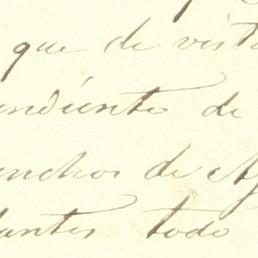 que de vist
endiente de
anchos de Ag
tantes todo